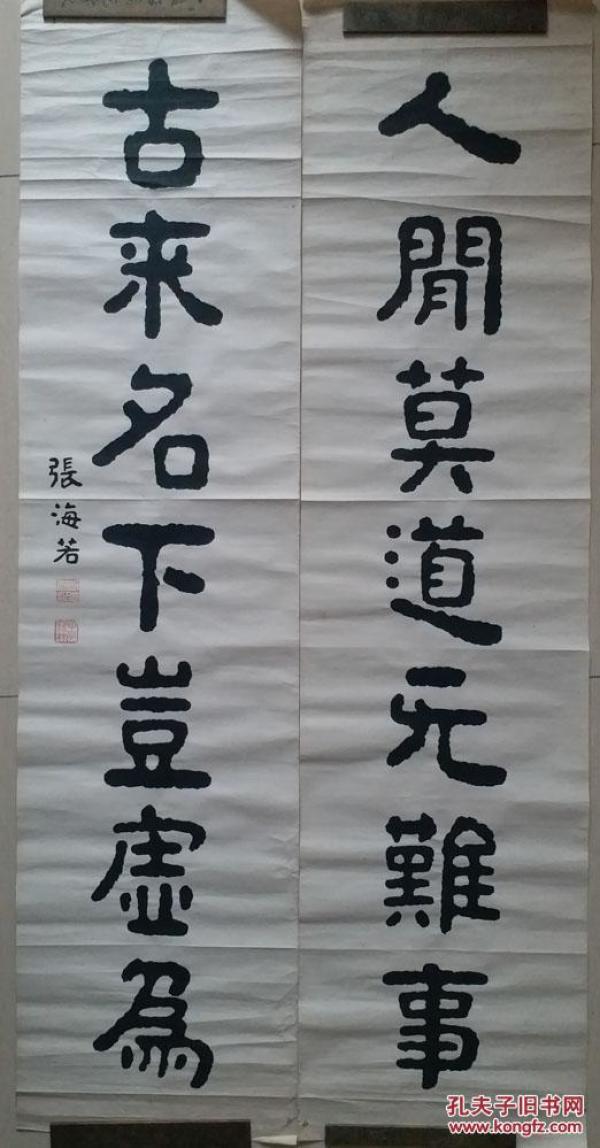 人間莫道无難事
古来名下豈虛為
張海若
孔夫子旧书网
www.kongfz.com